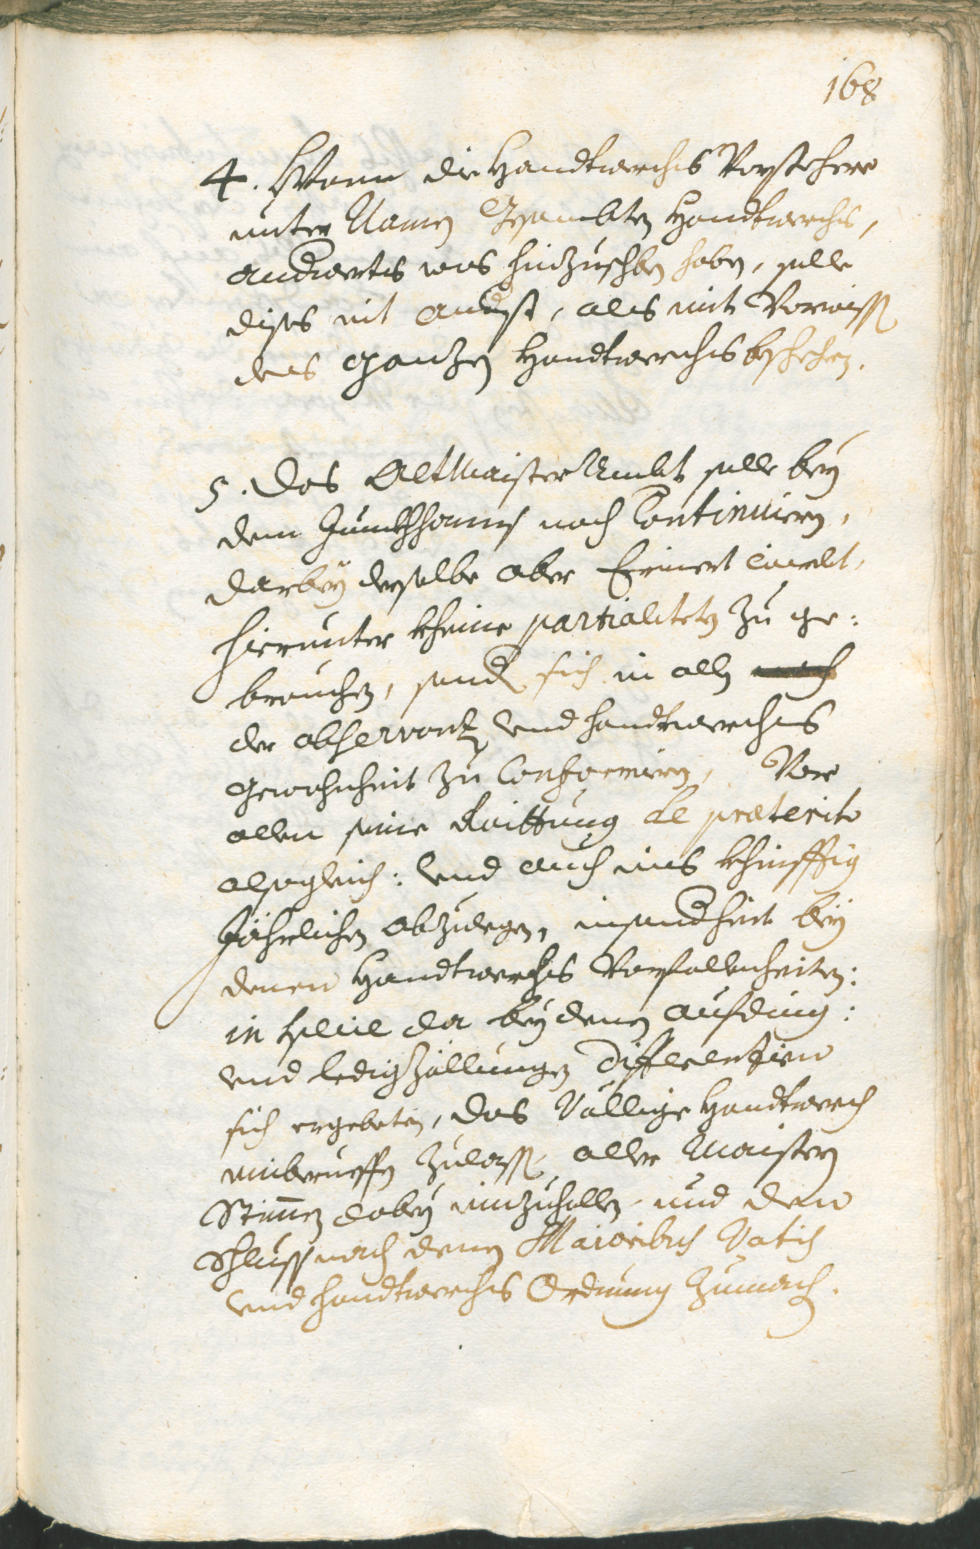 168
4. Wann die Handtwerchs Vorsteher
unter Namen Gesambten Handtwerchs,
andwerts was hinzuschben haben, solle
dises nit anderst, als mit Vorwissen
des ganzen Handtwerchs beschehen.
5. Das Altmaister Ambt solle bey
dem noch Continuiern,
darbey derselbe aber Erinert wirdt,
hierunter kheine partialitet zu ge:
brauchen, sond sich in allen
der observantz und handtwerchs
gewohnheit zu Conformiren, Vor
allen seine Raittung de præterito
alsogleich: und auch ins khinfftig
Jährlichen abzulegen, insonderheit bey
denen Handtwerchs Vorfallenheiten:
in specie da bey denen aufding:
und ledigzällungen differentien
sich ergebeten, das Völlige Handtwerch
einberueffen zulassen, aller Maistern
Stimen dabey einzuhollen und den
Schluss nach denen Maioribus Votis
und handtwerchs Ordnung zumachen.